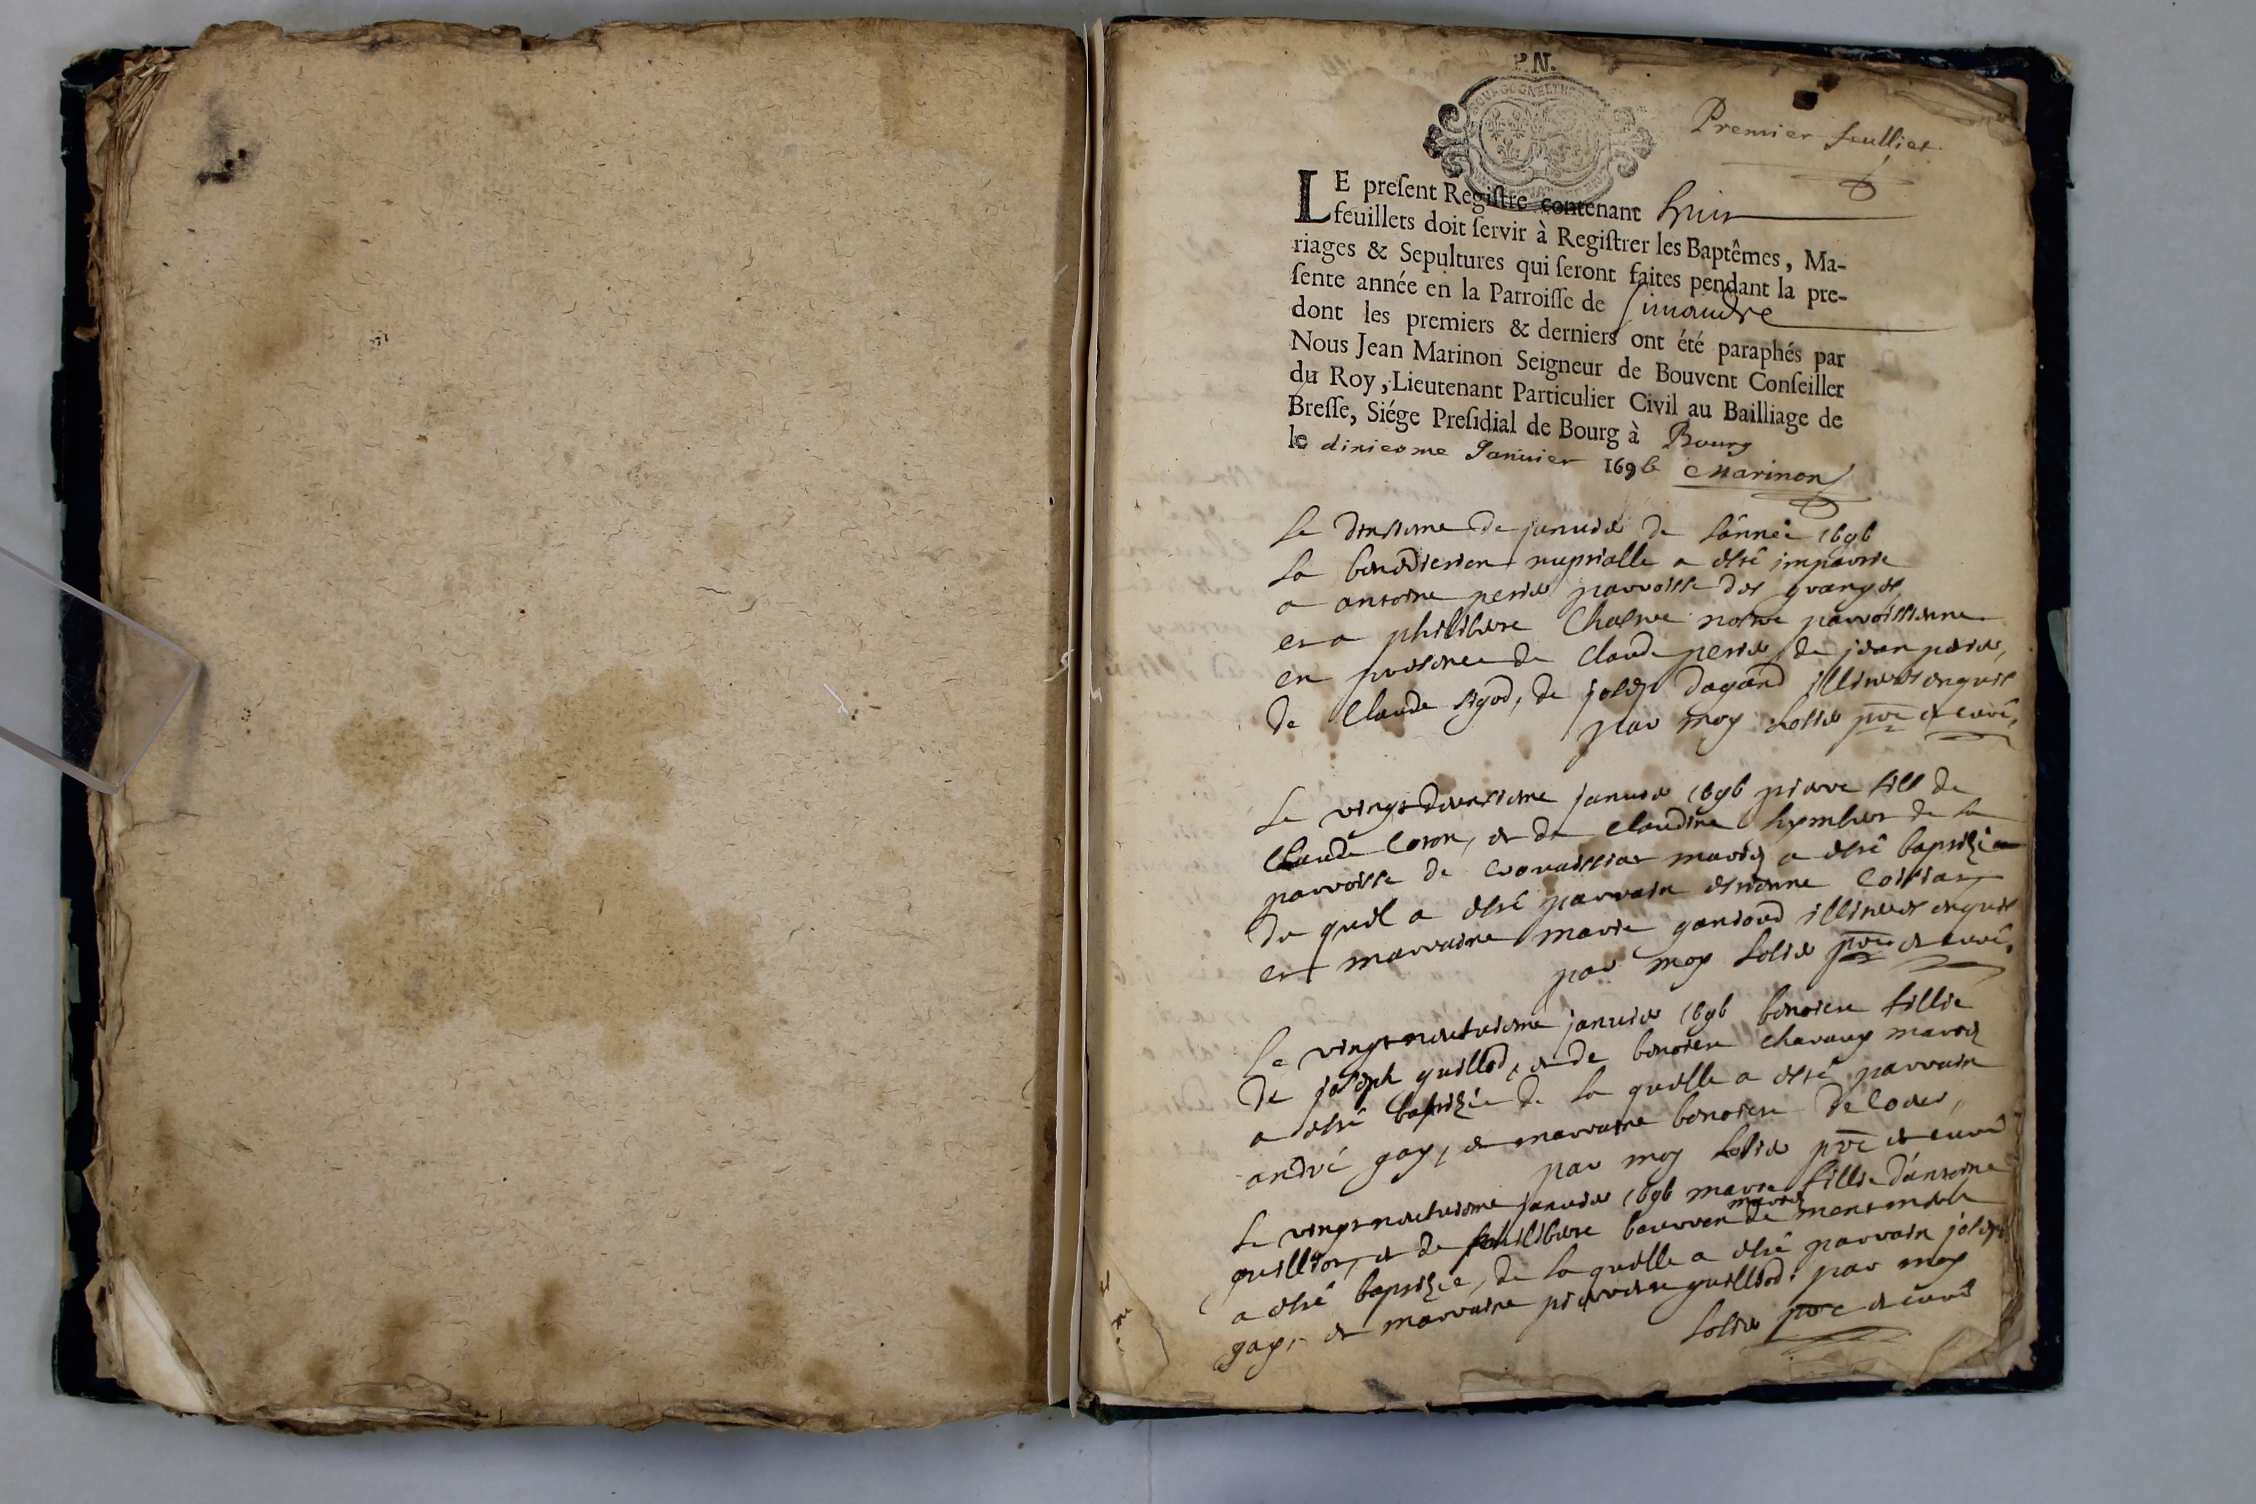 P.N.
Premier feulliet
LE preſent Regiſtre contenant huit
feuillets doit ſervir à Regiſtrer les Baptêmes, Ma-
riages & Sepultures qui ſeront faites pendant la pre-
ſente année en la Parroiſſe de Simandre
dont les premiers & derniers ont été paraphés par
Nous Jean Marinon Seigneur de Bouvent Conſeiller
du Roy, Lieutenant Particulier Civil au Bailliage de
Breſſe, Siége Preſidial de Bourg à Bourg
le dixiesme Januier 1696 Marinon
Le de januier de lánneê 1696
la benediction nuptialle a esté impartie
a antoine perier parroisse des granges
et a philiberte Chasne notre parroissienne
en presence de Claude perier, de jean perier,
de Claude de joseph dagand illiterés enquis
par moy pre̅ et curé,
Le vingtdeuxieme januier 1696 pierre fils de
Claude Coron, et de Claudine hymbert de la
parroisse de mariez a esté baptizé
du quel a esté parrain estienne
et marraine marie illiterés enquis
par moy pre̅ et curé.
Le vingtneufuieme januier 1696 benoiste fillie
de joseph guillod, et de benoiste mariez
a esté baptizée de la quelle a esté parrain
andré gay, et marraine benoiste
par moy pre̅ et curé
Le vingtneufuieme januier 1696 marie fillie dántoine
guilliot, et de philiberte mariez
a esté baptizée, de la quelle a esté parrain joseph
gay, et marraine pierrette guilliod. par moy
pre̅ et curé